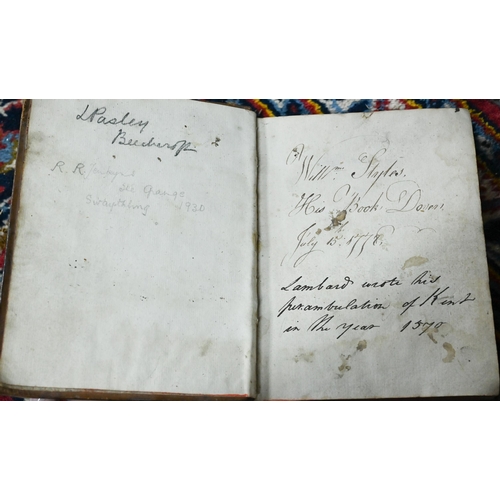 LPasley
Beechcroft
R. R.
The Gange
Swaythling 1930
Willm. Styles.
His Book Dover.
July 15th 1778.
Lambard wrote his
perambulation of Kent
in the year 1570